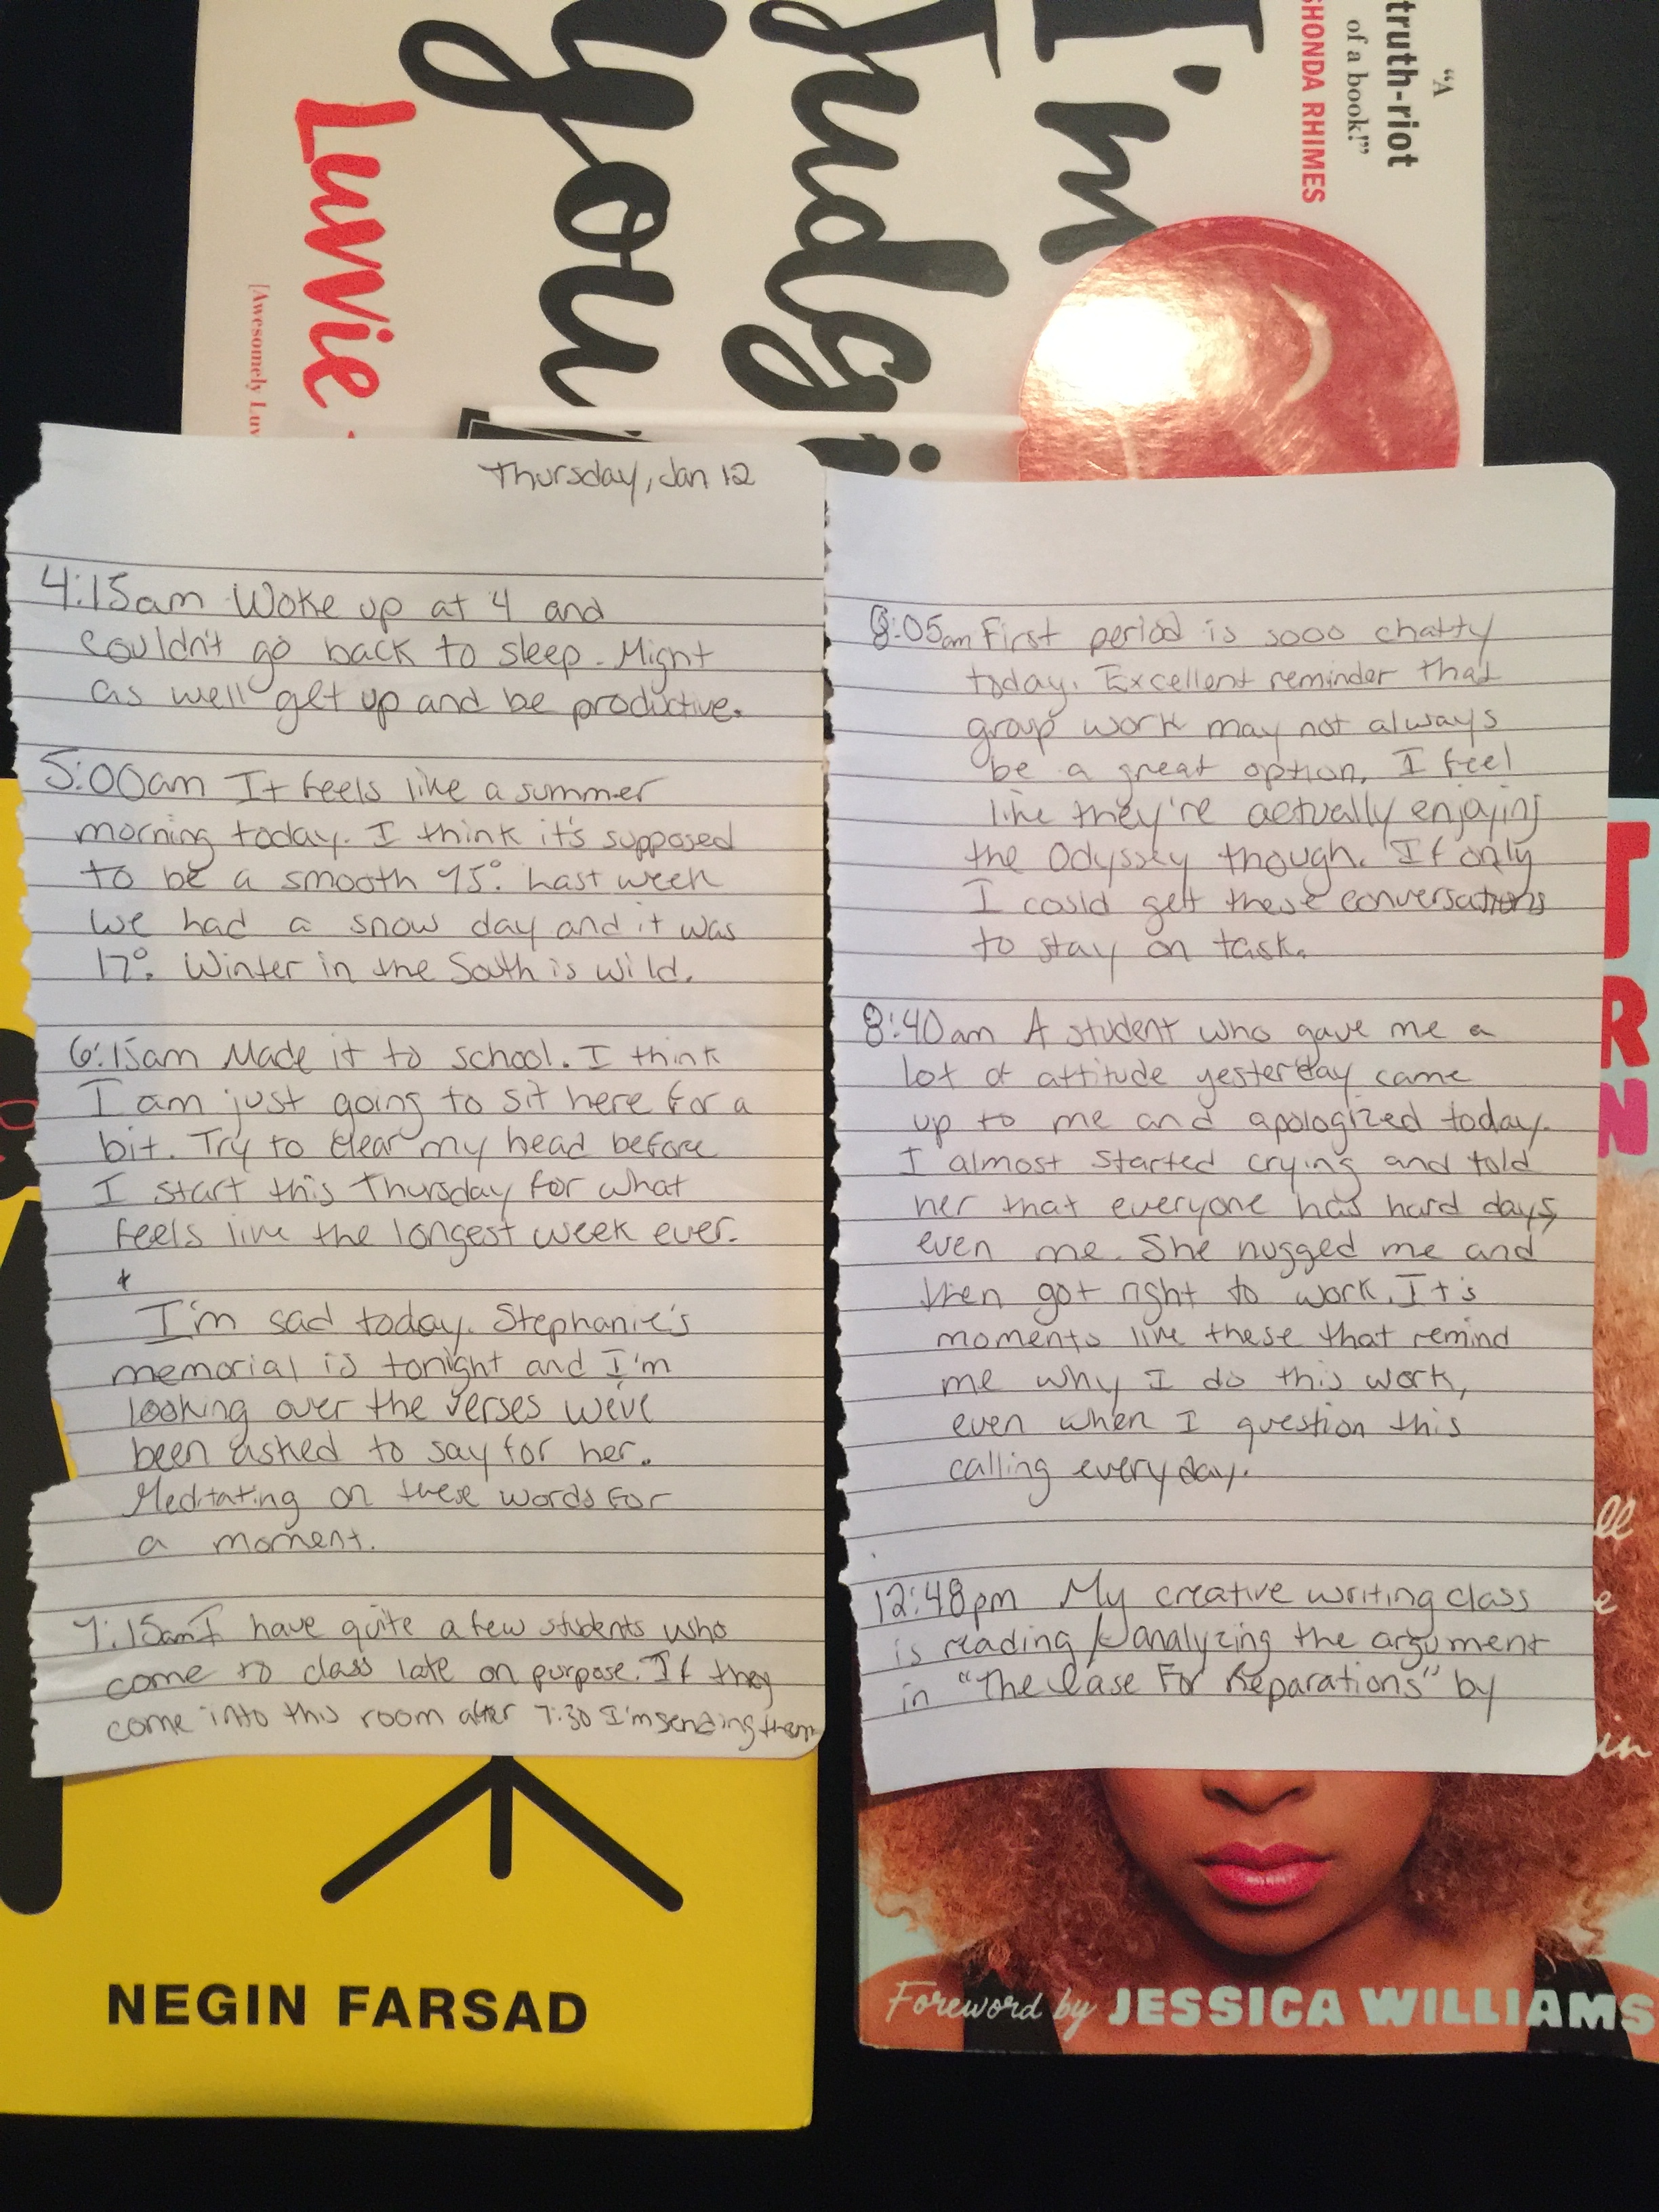 "A
truth-riot
of a book!"
SHONDA RHIMES
I'm
Judgi
you
Luvvie
[Awesomely Luv
Thursday, Jan 12
4:15am Woke up at 4 and
couldn't go back to sleep. Might
as well get up and be productive.
5:00am It feels like a summer
morning today. I think it's supposed
to be a smooth 75°. Last week
we had a snow day and it was
17°. Winter in the South is wild.
6:15am Made it to school. I think
I am just going to sit here for a
bit. Try to clear my head before
I start this Thursday for what
feels like the longest week ever.
*
I'm sad today. Stephanie's
memorial is tonight and I'm
looking over the verses we've
been asked to say for her.
Meditating on these words for
a moment.
7:15am I have quite a few students who
come to class late on purpose. If they
come into this room after 7:30 I'm sending them
8:05am First period is sooo chatty
today. Excellent reminder that
group work may not always
be a great option. I feel
like they're actually enjoying
the Odyssey though. If only
I could get these conversations
to stay on task.
8:40am A student who gave me a
lot of attitude yesterday came
up to me and apologized today.
I almost started crying and told
her that everyone has hard days,
even me. She hugged me and
then got right to work. It's
moments like these that remind
me why I do this work,
even when I question this
calling everyday.
12:48pm My creative writing class
is reading / analyzing the argument
in "The Case For Reparations" by
T
R
N
ll
e
in
NEGIN FARSAD
Foreword by JESSICA WILLIAMS